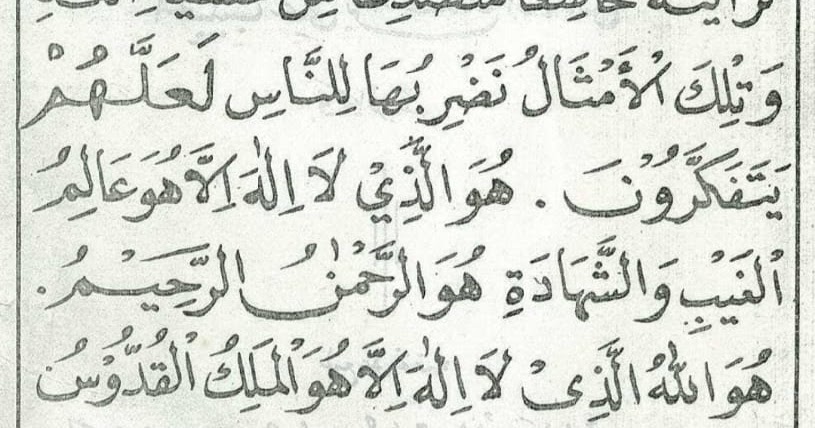 وَتِلْكَ الْأَمْثَالُ نَضْرِبُهَا لِلنَّاسِ لَعَلَّهُمْ
يَتَفَكَّرُوْنَ . هُوَ الَّذِيْ لَا اِلٰهَ اِلَّا هُوَ عَالِمُ
الْغَيْبِ وَالشَّهَادَةِ هُوَ الرَّحْمٰنُ الرَّحِيْمُ .
هُوَ اللّٰهُ الَّذِىْ لَا اِلٰهَ اِلَّا هُوَ الْمَلِكُ الْقُدُّوْسُ